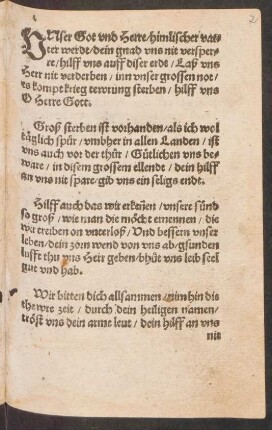 VNser Got vnd Herre/himlischer vat-
ter werde/dein gnad vns nit versper-
re/hilff vns auff diser erd/Laß vns
Herr nit verderben/inn vnser grossen not/
es kompt krieg tewrung sterben/hilff vns
O Herre Gott.
Groß sterben ist vorhanden/als ich wol
täglich spür/vmbher in allen Landen/ist
vns auch vor der thür/Gütlichen vns be-
ware/in disem grossem ellende/dein hilff
an vns nit spare/gib vns ein seligs endt.
Hilff auch das wir erkeñen/vnsere sünd
so groß/wie man die möcht ernennen/die
wir treiben on vnterloß/Vnd bessern vnser
leben/dein zorn wend von vns ab/gsunden
lufft thu vns Herr geben/bhüt vns leib seel
gut vnd hab.
Wir bitten dich allsammen/nim hin die
thewre zeit/durch dein heiligen namen/
tröst vns dein arme leut/dein hilff an vns
nit
2